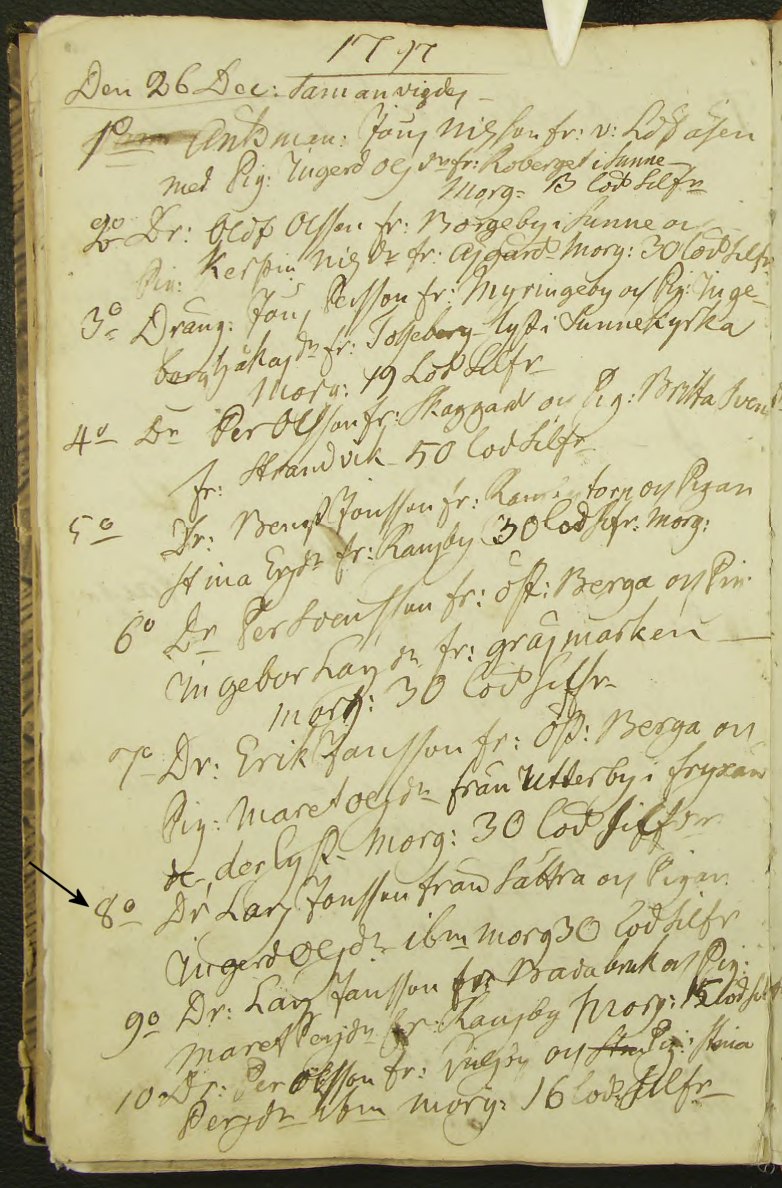 1797
Den 26 Dec: Samanvigdes
1o Enkman: Jöns Nilsson fr: v:
med Pig: Ingerd Olsdr fr: Roberget i Sunne
Morg: 13 lod Silfr
2o Dr: Olof Olsson fr: Bergeby i Sunne och
Pig: Kerstin Nilsdr fr: Morg: 30 lod Silfr
3o Dräng: Jöns Persson fr: Myringeby och Pig: Inge-
borg fr: Tosseberg lyst i Sunne Kyrka
Morg: 19 Lod Silfr
4o Dr Per Olsson fr: Skaggard och Pig: Britta Svens
fr: Strandvik 50 lod Silfr
5o Dr: Bengt Jonsson fr: och Pigan
Stina Ersdr fr: Ransby 30 lod Silfr: Morg:
6o Dr Per Svensson fr: öst: Berga och Pig
Ingebor Larsdr fr: gräsmarken
morg: 30 lod Silfr
7o Dr: Erik Jansson fr: Öst: Berga och
Pig: Maret Olsdr från Utterby i fryxän
de der lyst Morg: 30 lod Silfver
8o Dr Lars Jonsson från Sättra och Pigan
Ingerd Olsdr ibm morg 30 lod Silfr
9o Dr: Lars Jansson fr Bada bruk och Pig:
Maret Persdr fr: Ransby Morg: 15 lod Silf
10 Dr: Per Olsson fr: och Pig: Stina
Persdr ibm morg: 16 lod Silfr